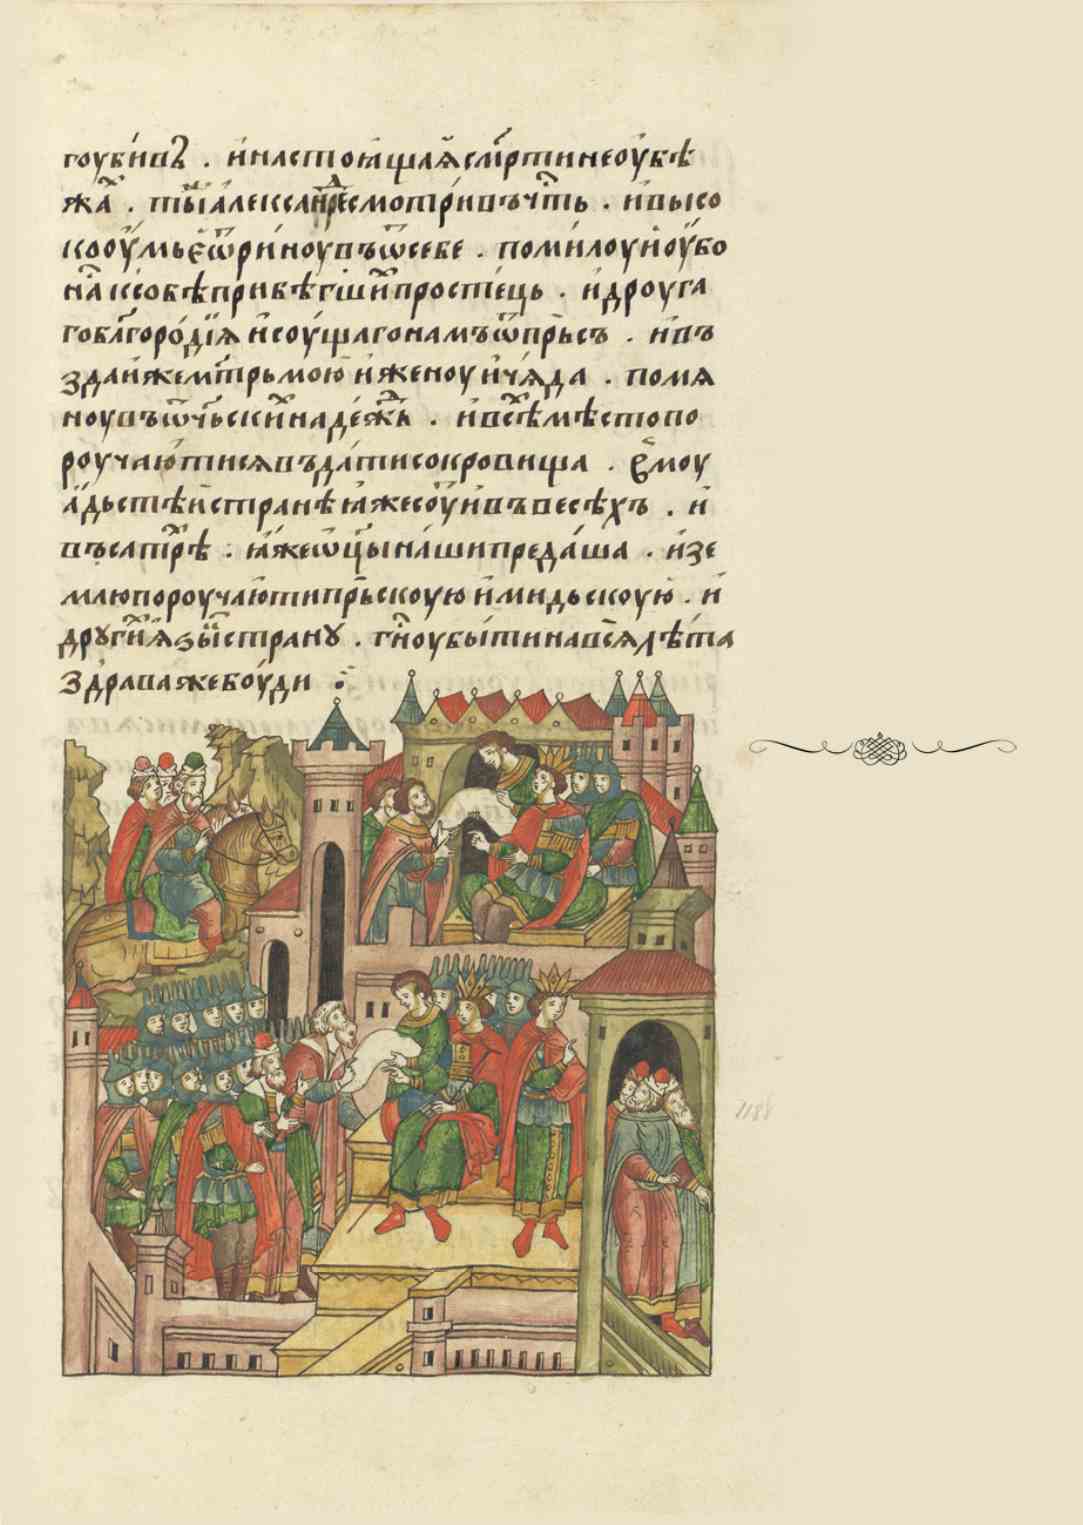 гоуби́въ . и настоѧщаѧ смр҃ти не оубѣ
жа́х . ты́ алекса́ндре смотри́въ чть . и высо
коѹ́мьѐ ѿри́ноувъ ѿ себе . поми́лоуи оу́бо
на́ к собѣ прибѣгши́х просте́ць . и дроуга
го благоро́дїѧ и соу́щаго намъ ѿ пръсъ . и въ
зда́и же мт҃рь мою и женоу и чѧ́да . помѧ
ноувъ ѿчьски́х наде́жь . и в се́х мѣсто по
роуча́ют ти сѧ въда́ти сокровища . ємоу
а́дьстѣи странѣ ꙗже соу́и въ весѣхъ . и
въ сатрѣ . ꙗ́же ѿцы́ на́ши преда́ша . и зе
млю пороуча́ю ти прьскоую и мидьскоую . и
други́ѧ ѕы́ страну . гн҃оу бы́ти на всѧ лѣ́та
здра́ва же боу́ди :